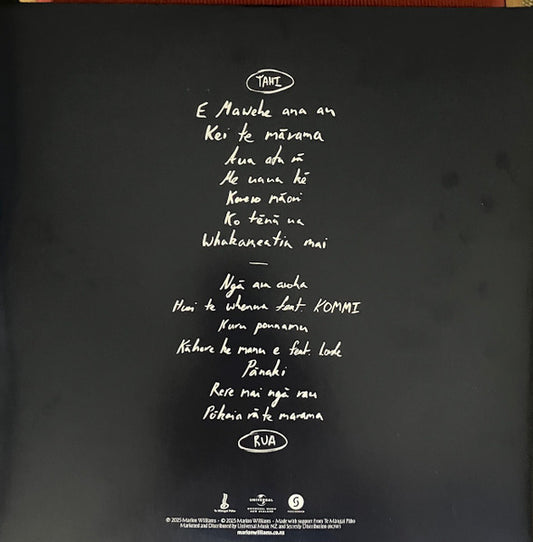 TAHI
E Mawehe ana au
Kei te mārama
Aua atu rā
Me uaua kē
Korero māori
Ko tēnā ua
Whakameatia mai
Ngā ara aroha
Huri te whenua feat. KOMMI
Kuru pounamu
Kāhore he manu e feat. Lorde
Pānaki
Rere mai ngā rau
Pōkaia rā te marama
RUA
Te Māngai Pāho
UNIVERSAL
UNIVERSAL MUSIC
NEW ZEALAND
℗ 2025 Marlon Williams - © 2025 Marlon Williams - Made with support from Te Māngai Pāho
Marketed and Distributed by Universal Music NZ and Secretly Distribution
marlonwilliams.co.nz